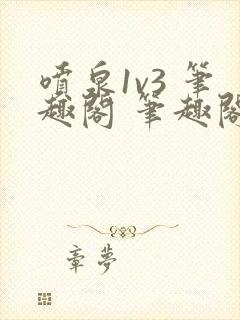 噴泉1v3 筆
趣閣 筆趣閣
章夢